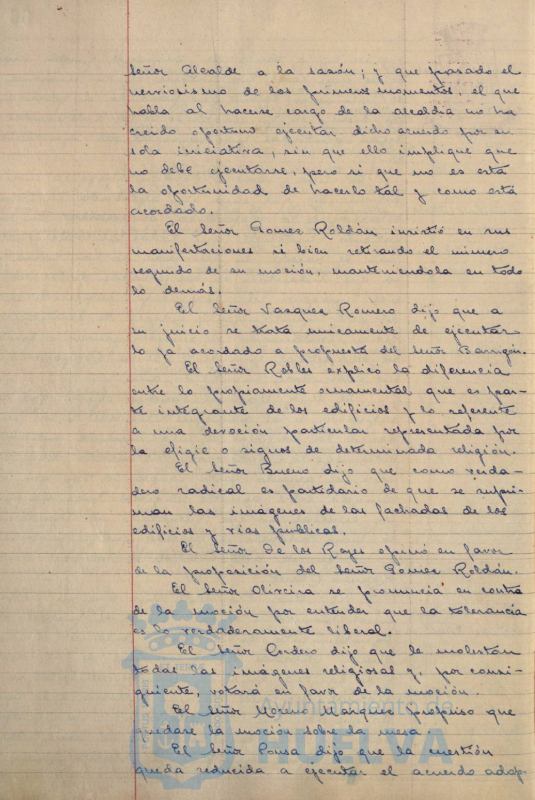 señor Alcalde a la sazón; y que pasado el
nerviosismo de los primeros momentos, el que
habla al hacerse cargo de la alcaldía no ha
creido oportuno ejecutar dicho acuerdo por su
sola iniciativa, sin que ello implique que
no debe ejecutarse, pero si que no es está
la oportunidad de hacerlo tal y como está
acordado.
El Señor Gomez Roldán insistió en sus
manifestaciones si bien retirando el número
segundo de su moción, manteniendola en todo
lo demás.
El Señor Vazquez Romero dijo que a
su juicio se trata unicamente de ejecutar
lo ya acordado a propuesta del señor Barrigón.
El Señor Robles explicó la diferencia
entre lo propiamente ornamental que es par-
te integrante de los edificios y lo referente
a una devoción particular representada por
la efigie o signos de determinada religión.
El Señor Bueno dijo que como verda-
dero radical es partidario de que se supri-
man las imágenes de las fachadas de los
edificios y vías públicas.
El Señor De los Reyes opinó en favor
de la proposición del señor Gomez Roldán.
El Señor Oliveira se pronuncia en contra
de la moción por entender que la tolerancia
es lo verdaderamente liberal.
El Señor Cordero dijo que le molestan
todas las imágenes religiosas y, por consi-
guiente, votará en favor de la moción.
El Señor Moreno Marquez propuso que
quedare la moción sobre la mesa.
El Señor Ponsa dijo que la cuestión
queda reducida a ejecutar el acuerdo adop-
Ayuntamiento de
HUELVA